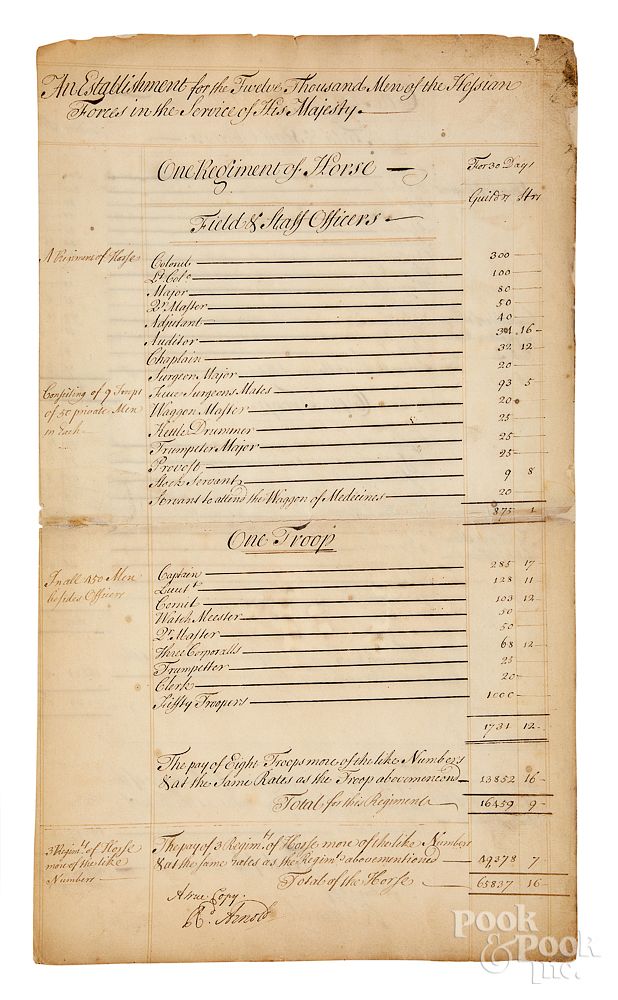 An Establishment for the Twelve Thousand Men of the Hessian
Forces in the Service of His Majesty
One Regiment of Horse
For 30 Days
Guild.rs Strs
Field & Staff Officers
A Regiment of Horse
Colonel 300
Lt. Col.o 100
Major 80
Qr. Master 50
Adjutant 40
Auditor 34 16
Chaplain 32 12
Surgeon Major 20
Consisting of 9 Troops
of 50 private Men
in Each
Five Surgeons Mates 93 5
Waggon Master 20
Kettle Drummer 25
Trumpeter Major 25
Provost 25
Stock Servant 9 8
Servant to attend the Waggon of Medecines 20
875 1
One Troop
In all 450 Men
besides Officers
Captain 285 17
Lieut.t 128 11
Cornet 103 12
Watch Meester 50
Qr. Master 50
Three Corporalls 68 12
Trumpetter 25
Clerk 20
Fiffty Troopers 1000
1731 12
The pay of Eight Troops more of the like Numbers
& at the Same Rates as the Troop abovemencon'd 13852 16
Total for this Regiment 16459 9
3 Regim.ts of Horse
more of the like
Numbers
The pay of 3 Regim.ts of Horse more of the like Number
& at the same rates as the Regim.t abovementioned 49378 7
Total of the Horse 65837 16
A true Copy.
R.d Arnold
POOK
& POOK
Inc.